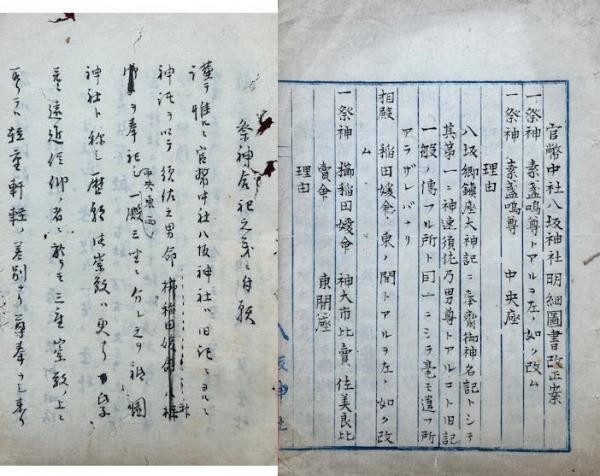 官幣中社八坂神社明細圖書改正案
一祭神 素盞嗚尊トアルヲ左ノ如ク改ム
一祭神 素盞嗚尊 中央座
理由
八坂鄉鎮座大神記ニ奉齋御神名記トシテ
其第一ニ神速須佐乃男尊トアルコト旧記
一般ノ傳フル所ト同一ニシテ毫モ違フ所
アラザレバナリ
相殿 稲田媛命ノ東ノ間トアルヲ左ノ如ク改
ム
一祭神 櫛稲田媛命 神大市比賣 佐美良比
賣命 東間座
理由
八坂神社
祭神合祀之義ニ付願
謹テ惟ルニ官幣中社八坂神社ハ旧記ニヨルニ
神託ヲ以テ須佐之男命櫛稲田媛命八柱
ヲ奉祀シ一殿三坐ニ分シ之ヲ祇園
中央東西
神社ト称シ歴朝御崇敬ハ更ナリ
遠近信仰ノ者ニ於テモ三座崇敬ノ上ニ
軽重軒輊ノ差別ナク尊奉シ来リ